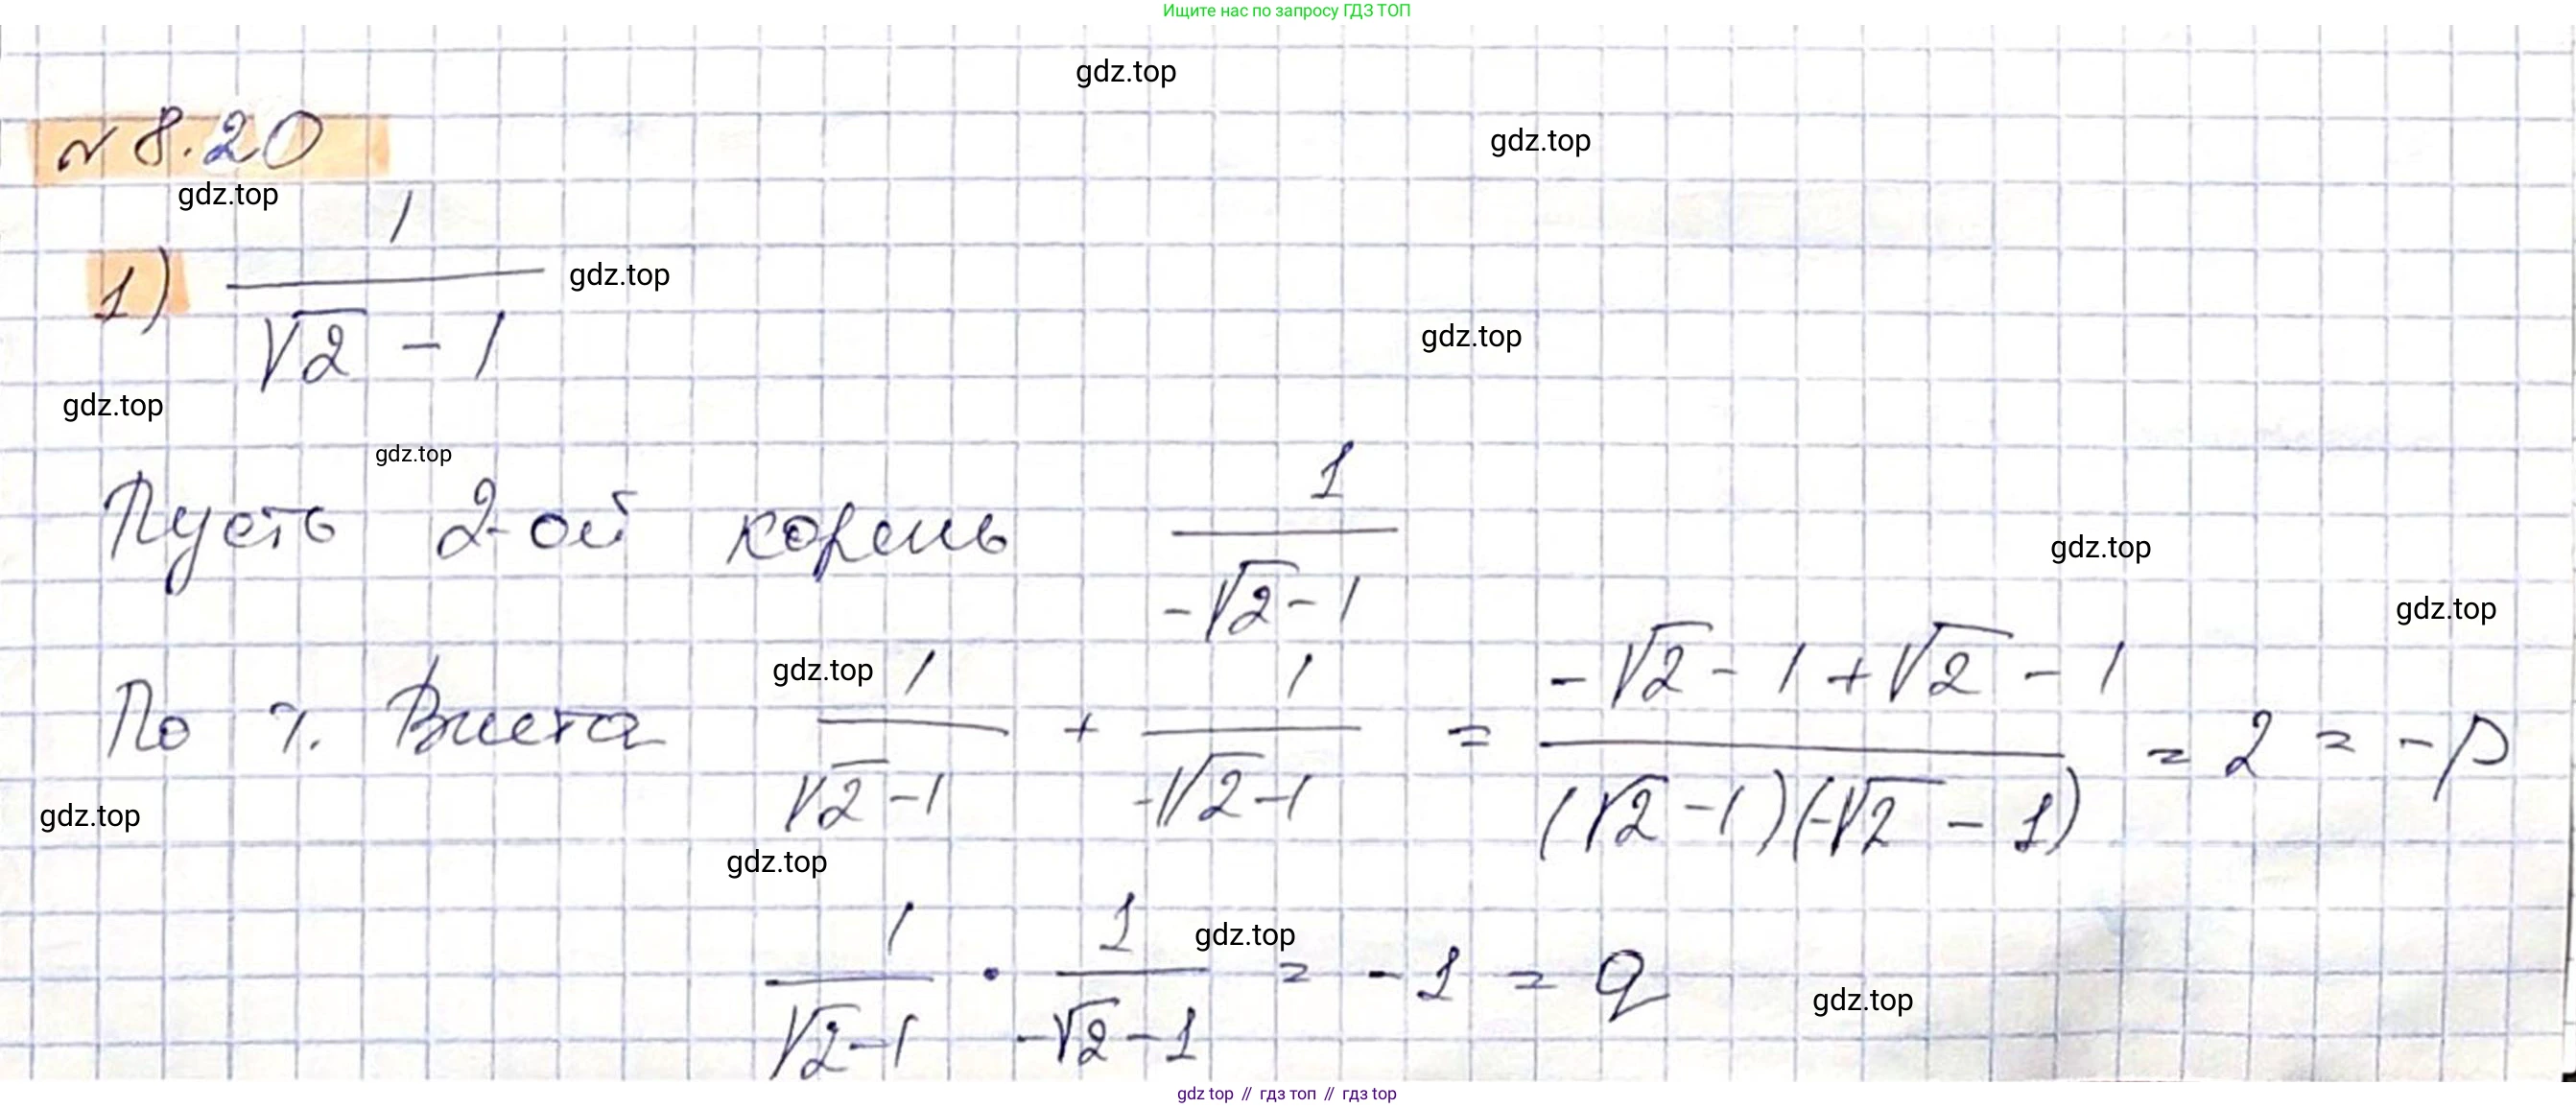 Ищите нас по запросу ГДЗ ТОП
gdz.top
№ 8.20
gdz.top
gdz.top
1) 1 / (√2 - 1)
gdz.top
gdz.top
gdz.top
gdz.top
Пусть 2-ой корень 1 / (-√2 - 1)
gdz.top
gdz.top
gdz.top
По т. Виета 1 / (√2 - 1) + 1 / (-√2 - 1) = (-√2 - 1 + √2 - 1) / ((√2 - 1)(-√2 - 1)) = 2 = -p
gdz.top
gdz.top
gdz.top
1 / (√2 - 1) · 1 / (-√2 - 1) = -1 = q
gdz.top
gdz top // гдз топ // гдз top